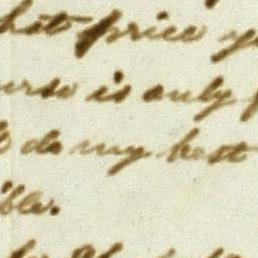 hat price y
urse is only p
do my best
ible.